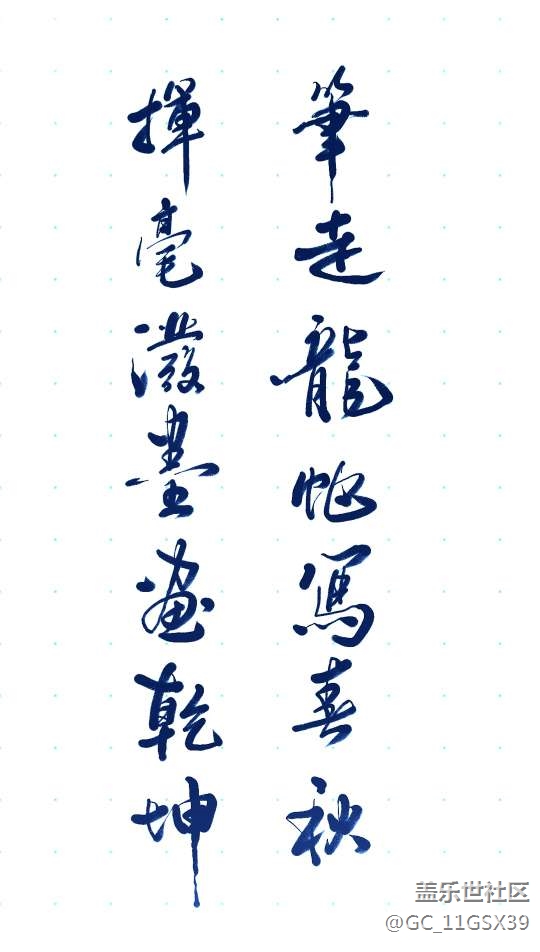 筆走龍蛇寫春秋
揮毫潑墨畫乾坤
盖乐世社区
@GC_11GSX39